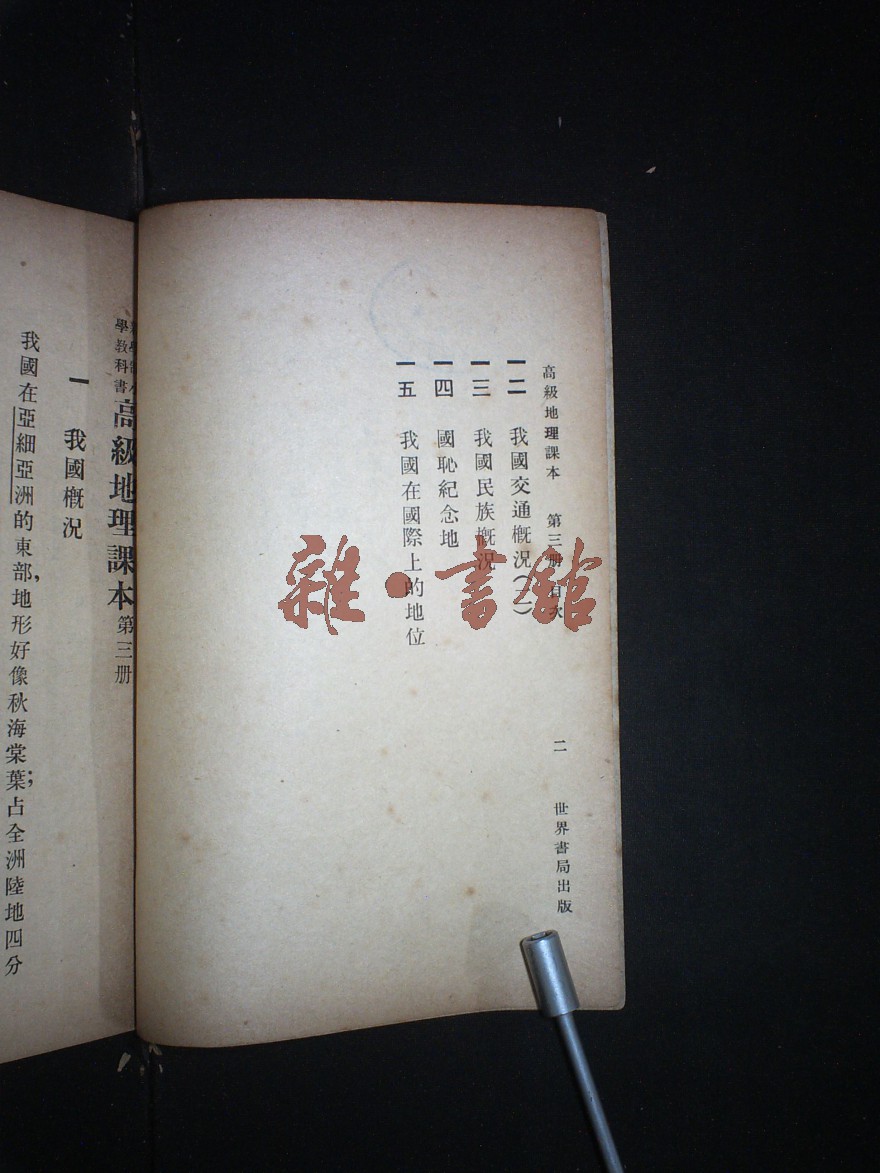 高級地理課本 第三册 目次
一二 我國交通概況(二)
一三 我國民族概況
一四 國恥紀念地
一五 我國在國際上的地位
二
世界書局出版
學教科書
高級地理課本 第三册
一 我國概況
我國在亞細亞洲的東部,地形好像秋海棠葉;占全洲陸地四分
雜·書館